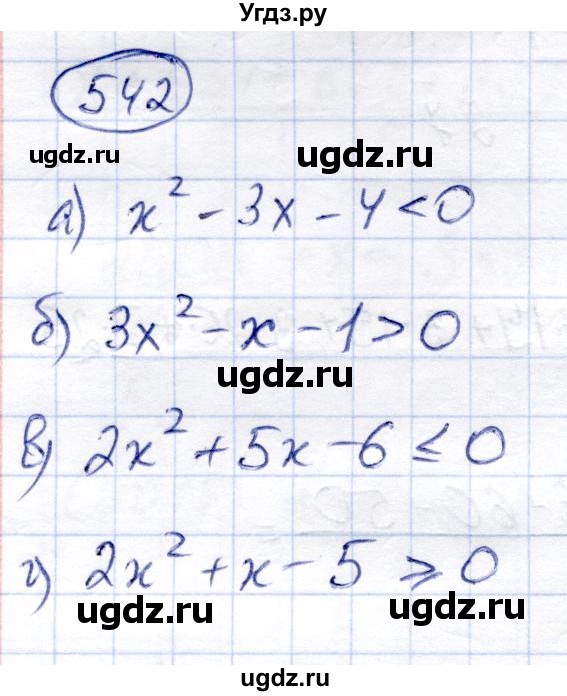 Угдз.ру
542
ugdz.ru ugdz.ru
а) x² - 3x - 4 < 0
б) 3x² - x - 1 > 0
ugdz.ru
в) 2x² + 5x - 6 ≤ 0
г) 2x² + x - 5 ⩾ 0
ugdz.ru ugdz.ru
ugdz.ru